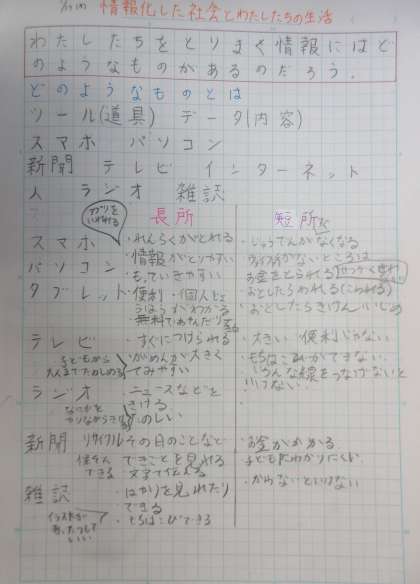 情報化した社会とわたしたちの生活
わたしたちをとりまく情報にはど
のようなものがあるのだろう。
どのようなものとは
ツール(道具) データ(内容)
スマホ パソコン
新聞 テレビ インターネット
人 ラジオ 雑誌
長所 短所
スマホ
パソコン
タブレット
・れんらくがとれる
・情報がとりやすい
・もっていきやすい
・便利・個人
無料で
・じゅうでんがなくなる
ないところは
お金をとられる
・おとしたらわれる(こわれる)
・おとしたらきけん いじめ
テレビ
子どもから
大人までたのしめる
・すぐにつけられる
・がめんが大きく
てみやすい
・大きい 便利じゃない
・もちはこびができない。
・いろんな線をつなげないと
いけない。
ラジオ
なにかを
やりながらきける
・ニュースなどを
きける
・たのしい
新聞
リサイクル
できる
その日のことなど
できごとを見れる
文字で伝える
・お金がかかる
子どもにわかりにくい
雑誌
イラストが
いい
・ばかりを見れたり
できる
・もちはこびできる
・かわないといけない